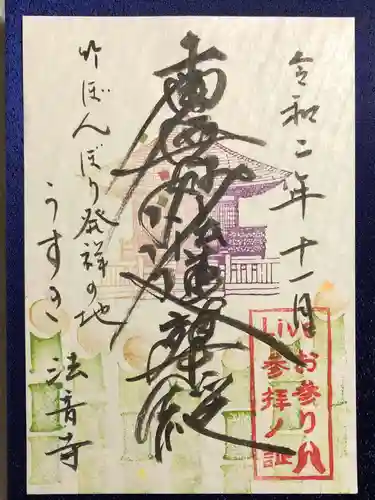 令和二年十一月
南無妙法蓮華経
竹ぼんぼり発祥の地
うすき
法音寺
Liveお参り
参拝ノ証